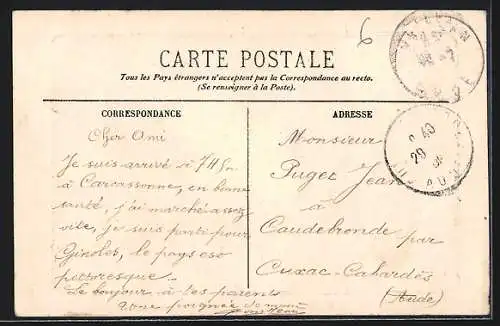 6
CARTE POSTALE
Tous les Pays étrangers n'acceptent pas la Correspondance au recto.
(Se renseigner à la Poste).
CORRESPONDANCE
Cher Ami
Je suis arrivé à 7H
à Carcassonne, en bonne
santé, j'ai marché assez
vite, je suis parti pour
Ginoles, le pays est
pittoresque.
Le bonjour à tes parents
Une poignée de main
ADRESSE
Monsieur
Puget Jean
à
Caudebronde par
Cuxac-Cabardès
(Aude)